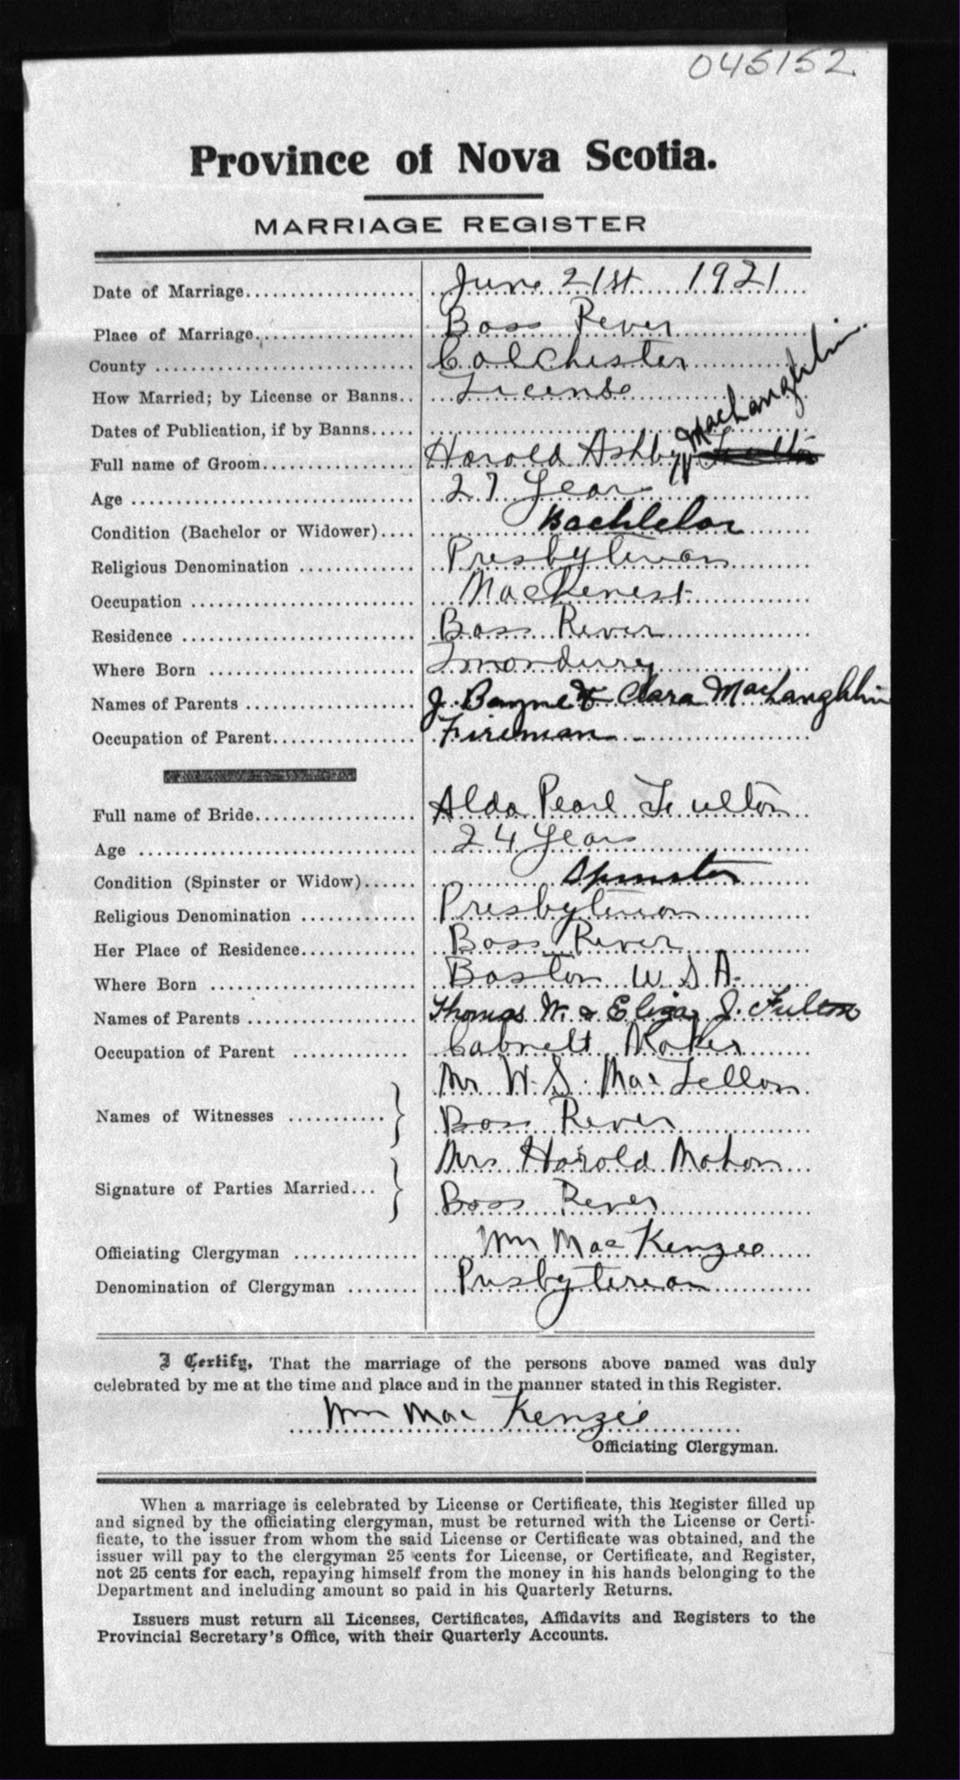 045152
Province of Nova Scotia.
MARRIAGE REGISTER
Date of Marriage.................... June 21st 1921
Place of Marriage................... Bass River
County ............................. Colchester
How Married; by License or Banns.. License
Dates of Publication, if by Banns.....
MacLaughlin
Full name of Groom.................. Harold Ashby Fulton
Age ................................ 27 Years
Condition (Bachelor or Widower).... Bachlelor
Religious Denomination ............ Presbyterian
Occupation ......................... MacHenest
Residence .......................... Bass River
Where Born ........................
Names of Parents ................... J. Bayne & Clara MacLaughlin
Occupation of Parent................ Fireman
Full name of Bride.................. Alda Pearl Fulton
Age ................................ 24 Years
Condition (Spinster or Widow)...... Spinster
Religious Denomination ............ Presbyterian
Her Place of Residence............. Bass River
Where Born ........................ Boston U.S.A.
Names of Parents ................... Thomas W. & Eliza J. Fulton
Occupation of Parent .............. Cabnelt Maker
Mr W. S. MacLellan
Names of Witnesses ............ } Bass River
Mrs Harold Mahon
Signature of Parties Married... } Bass River
Officiating Clergyman .............. Wm MacKenzie
Denomination of Clergyman ........ Presbyterian
I Certify, That the marriage of the persons above named was duly
celebrated by me at the time and place and in the manner stated in this Register.
Wm MacKenzie
Officiating Clergyman.
When a marriage is celebrated by License or Certificate, this Register filled up
and signed by the officiating clergyman, must be returned with the License or Certi-
ficate, to the issuer from whom the said License or Certificate was obtained, and the
issuer will pay to the clergyman 25 cents for License, or Certificate, and Register,
not 25 cents for each, repaying himself from the money in his hands belonging to the
Department and including amount so paid in his Quarterly Returns.
Issuers must return all Licenses, Certificates, Affidavits and Registers to the
Provincial Secretary's Office, with their Quarterly Accounts.